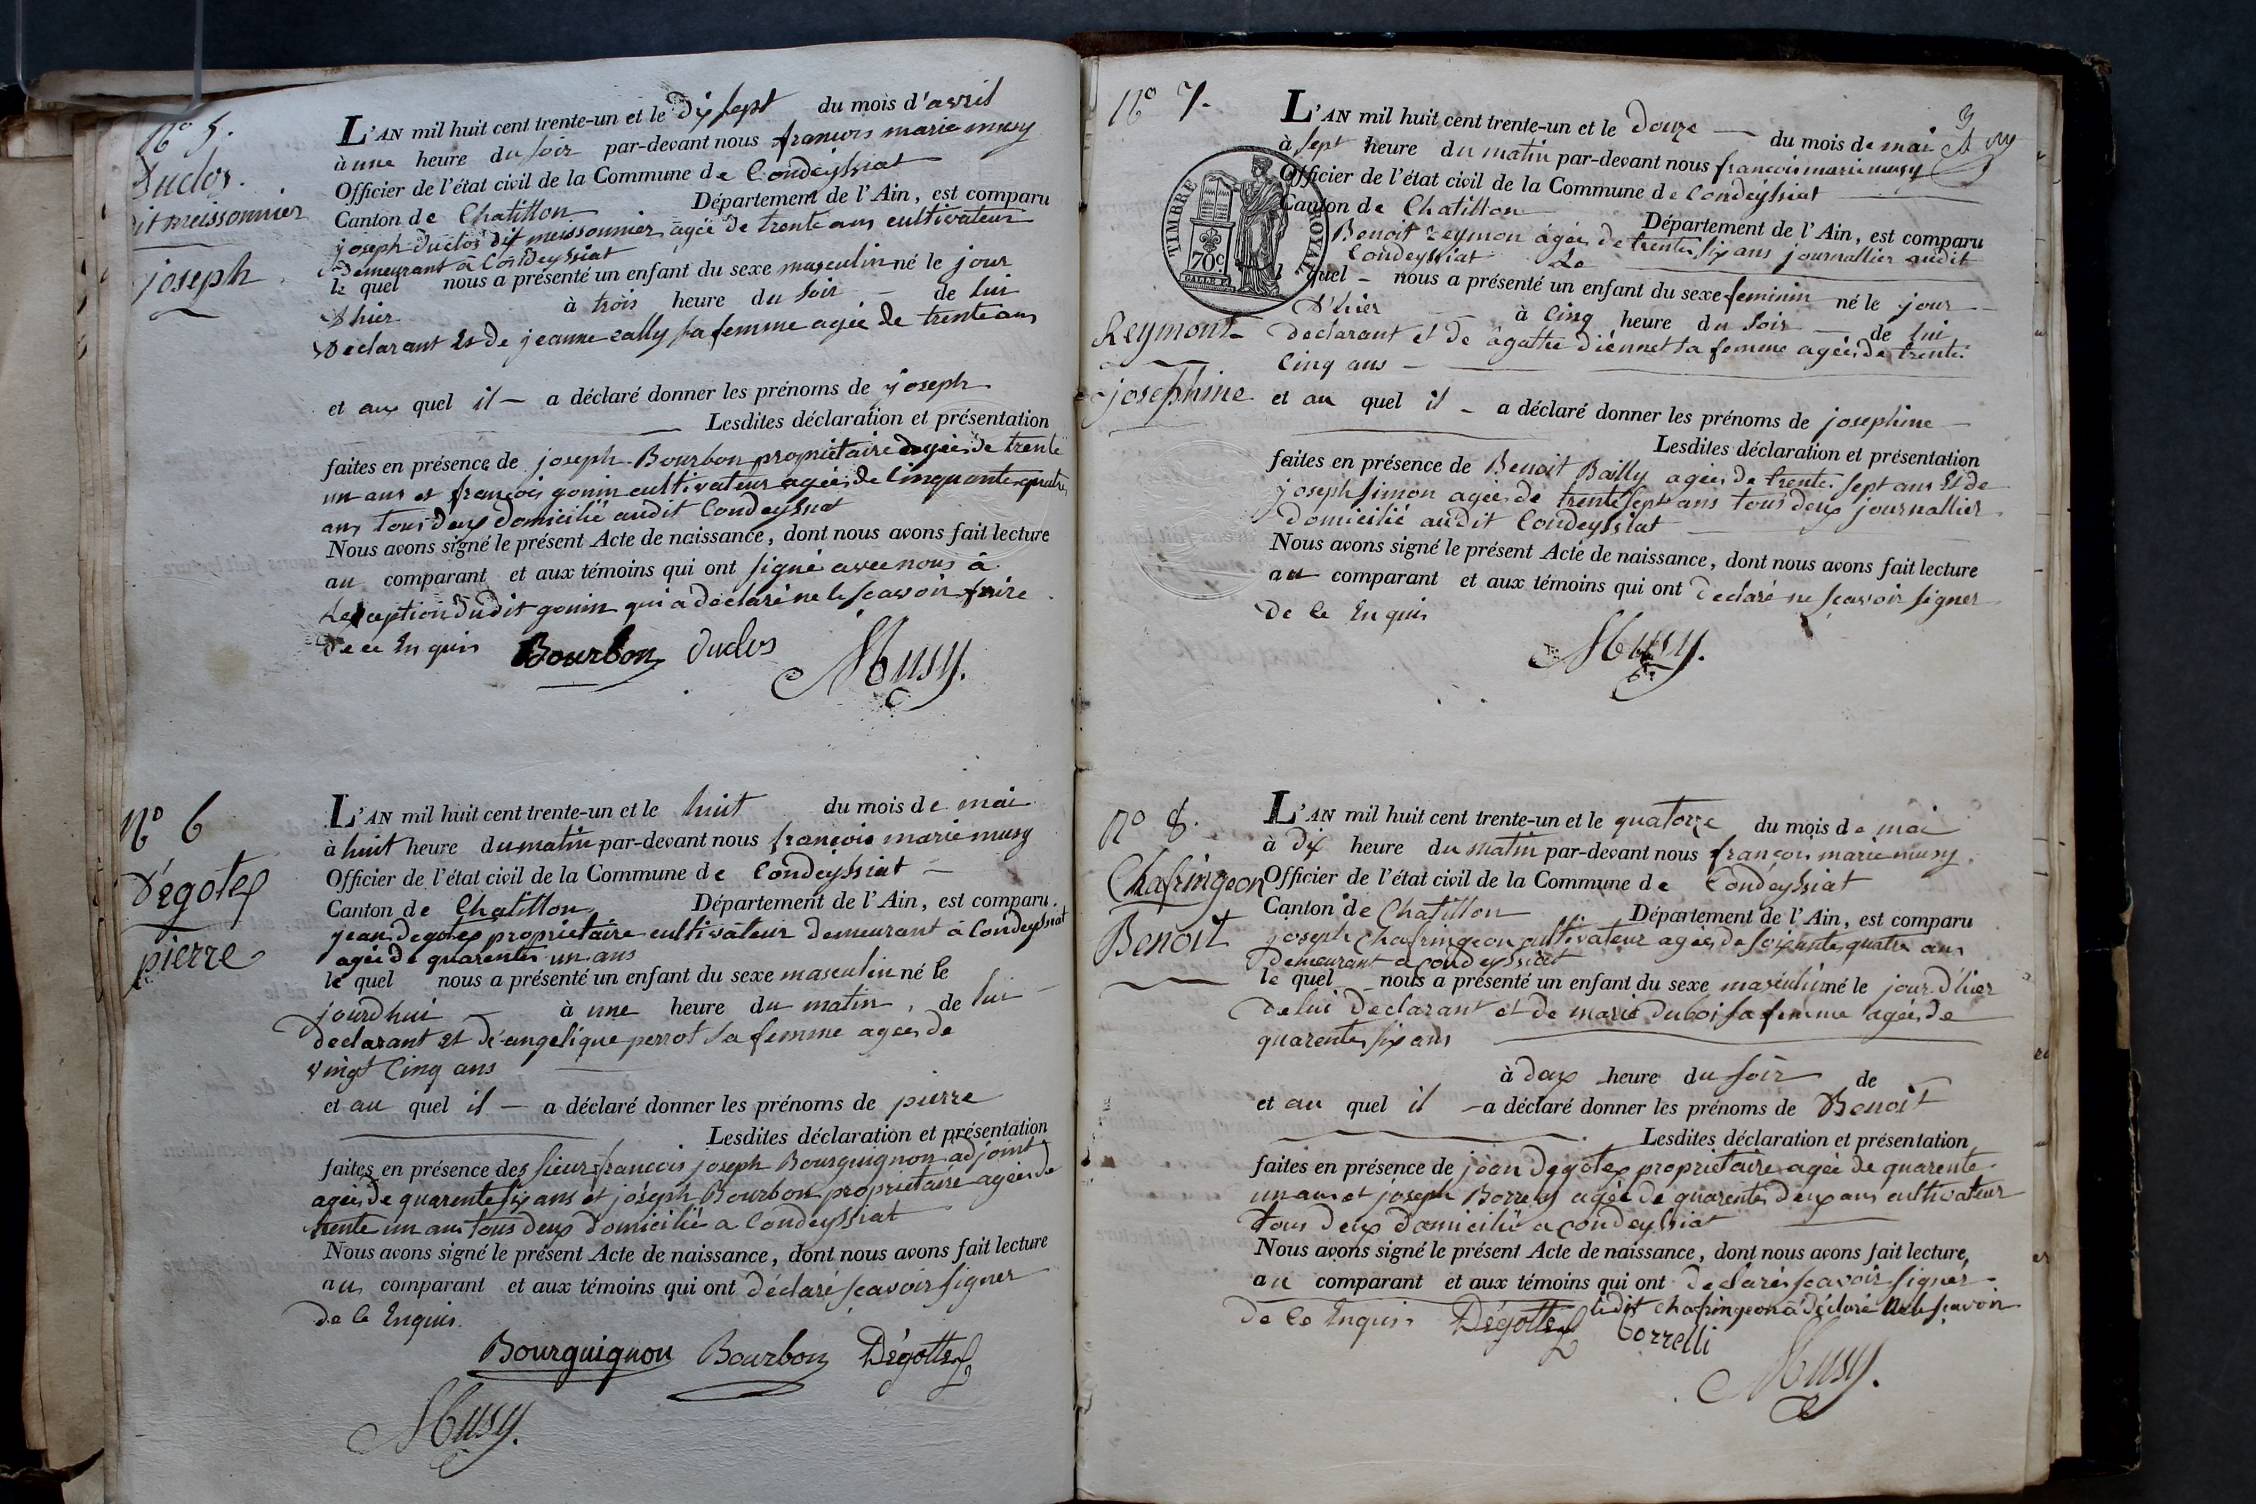 N° 5.
Duclos.
dit meissonnier
joseph
L'AN mil huit cent trente-un et le dix sept du mois d'avril
à une heure du soir par-devant nous francois marie musy
Officier de l'état civil de la Commune de Condeyssiat
Canton de Chatillon Département de l'Ain, est comparu
joseph duclos dit meissonnier agée de trente ans cultivateur
demeurant a Condeyssiat
le quel nous a présenté un enfant du sexe masculin né le jour
d'hier à trois heure du soir — de lui
declarant Et de jeanne sa femme agée de trente ans
et au quel il — a déclaré donner les prénoms de joseph
Lesdites déclaration et présentation
faites en présence de joseph Bourbon propriétaire agée de trente
un ans et françois gonin cultivateur agée de Cinquante quatre
ans tous deux domicilié audit Condeyssiat
Nous avons signé le présent Acte de naissance, dont nous avons fait lecture
au comparant et aux témoins qui ont signé avec nous à
Lexception dudit gonin qui a declaré ne le scavoir faire
de ce Enquis Bourbon duclos Musy.
N° 6
Dégotex
pierre
L'AN mil huit cent trente-un et le huit du mois de mai
à huit heure du matin par-devant nous francois marie musy
Officier de l'état civil de la Commune de Condeyssiat —
Canton de Chatillon Département de l'Ain, est comparu
jean degotex propriétaire cultivateur demeurant à Condeyssiat
agée de quarente un ans
le quel nous a présenté un enfant du sexe masculin né le
jourdhui — à une heure du matin, de lui —
declarant Et d'angelique perrot sa femme agée de
vingt Cinq ans
et au quel il — a déclaré donner les prénoms de pierre
Lesdites déclaration et présentation
faites en présence des sieurs francois joseph Bourguignon adjoint
agée de quarente six ans et joseph Bourbon proprietaire agée de
trente un ans tous deux domicilié a Condeyssiat
Nous avons signé le présent Acte de naissance, dont nous avons fait lecture
au comparant et aux témoins qui ont déclaré scavoir signer
de Ce Enquis.
Bourguignon Bourbon Dégottex
Musy.
3
N° 7.
Reymont
josephine
TIMBRE ROYAL
70c
L'AN mil huit cent trente-un et le douze — du mois de mai
à sept heure du matin par-devant nous francois marie musy
Officier de l'état civil de la Commune de Condeyssiat
Canton de Chatillon Département de l'Ain, est comparu
Benoit reymon agée de trente six ans journallier audit
Condeyssiat Le
quel — nous a présenté un enfant du sexe feminin né le jour
d'hier à Cinq heure du soir — de lui
declarant et de agathe diennet sa femme agée de trente
Cinq ans —
et au quel il — a déclaré donner les prénoms de josephine
Lesdites déclaration et présentation
faites en présence de Benoit Bailly agée de trente sept ans Et de
joseph simon agée de trente sept ans tous deux journallier
domicilié audit Condeyssiat
Nous avons signé le présent Acte de naissance, dont nous avons fait lecture
au comparant et aux témoins qui ont declaré ne scavoir signer
de Ce Enquis
Musy.
N° 8.
Chafringeon
Benoit
L'AN mil huit cent trente-un et le quatorze du mois de mai
à dix heure du matin par-devant nous françois marie musy
Officier de l'état civil de la Commune de Condeyssiat
Canton de Chatillon Département de l'Ain, est comparu
joseph Chafringeon cultivateur agée de soixante quatre ans
demeurant a Condeyssiat
le quel nous a présenté un enfant du sexe masculin né le jour d'hier
de lui declarant et de marie duboi sa femme agée de
quarente six ans
à deux heure du soir de
et au quel il — a déclaré donner les prénoms de Benoit
Lesdites déclaration et présentation
faites en présence de jean degotex propriétaire agée de quarente
un ans et joseph agée de quarente deux ans cultivateur
tous deux domicilié a Condeyssiat
Nous avons signé le présent Acte de naissance, dont nous avons fait lecture,
au comparant et aux témoins qui ont declaré scavoir signer
ledit chafringeon a déclaré ne le scavoir
de Ce Enquis Dégottex Correlli
Musy.